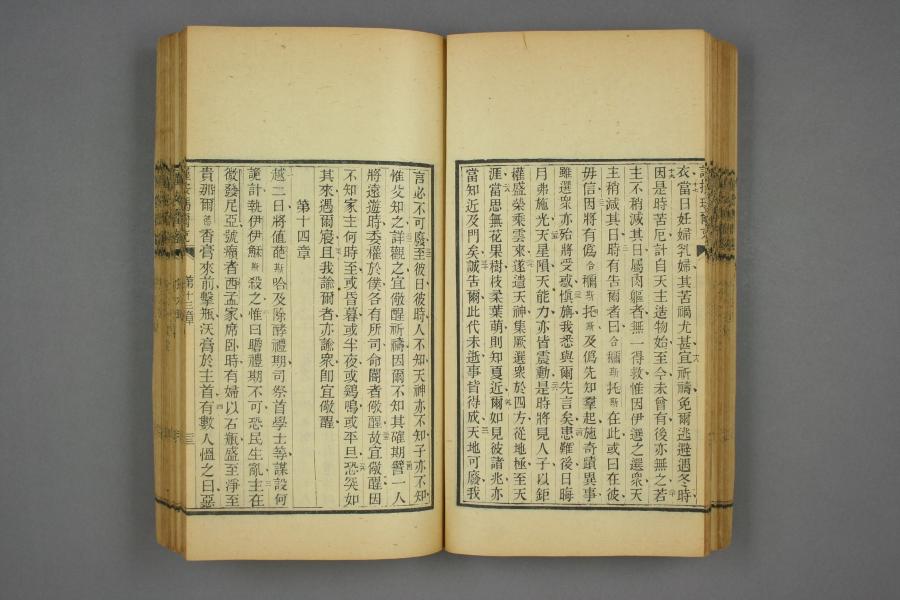 衣當日妊婦乳婦其苦禍尤甚宜祈禱免爾逃避遇冬時
因是時苦厄計自天主造物始至今未曾有後亦無之若
主不稍減其日屬肉軀者無一得救惟因伊選之選衆天
主稍減其日時有吿爾者曰令襧斯托斯在此或曰在彼
毋信因將有僞令襧斯托斯及僞先知羣起施奇蹟異事
雖選衆亦殆將受惑愼旃我悉與爾先言矣患難後日晦
月弗施光天星隕天能力亦皆震動是時將見人子以鉅
權盛榮乘雲來遂遣天神集厥選衆於四方從地極至天
涯當思無花果樹枝柔葉萌則知夏近爾如見彼諸兆亦
當知近及門矣誠吿爾此代未逝事皆得成天地可廢我
言必不可廢至彼日彼時人不知天神亦不知子亦不知
惟父知之詳觀之宜儆醒祈禱因爾不知其確期譬一人
將遠遊時委權於僕各有所司命閽者儆醒故宜儆醒因
不知家主何時至或昏暮或半夜或鷄鳴或平旦恐突如
其來遇爾寢且我諭爾者亦諭衆卽宜儆醒
第十四章
越二日將値葩斯哈及除酵禮期司祭首學士等謀設何
詭計執伊伊穌斯殺之惟曰瞻禮期不可恐民生亂主在
微發尼亞號癩者西孟家席卧時有婦以石瓶盛至淨至
貴那爾德香膏來前擊瓶沃膏於主首有數人慍之曰惡
第十三章